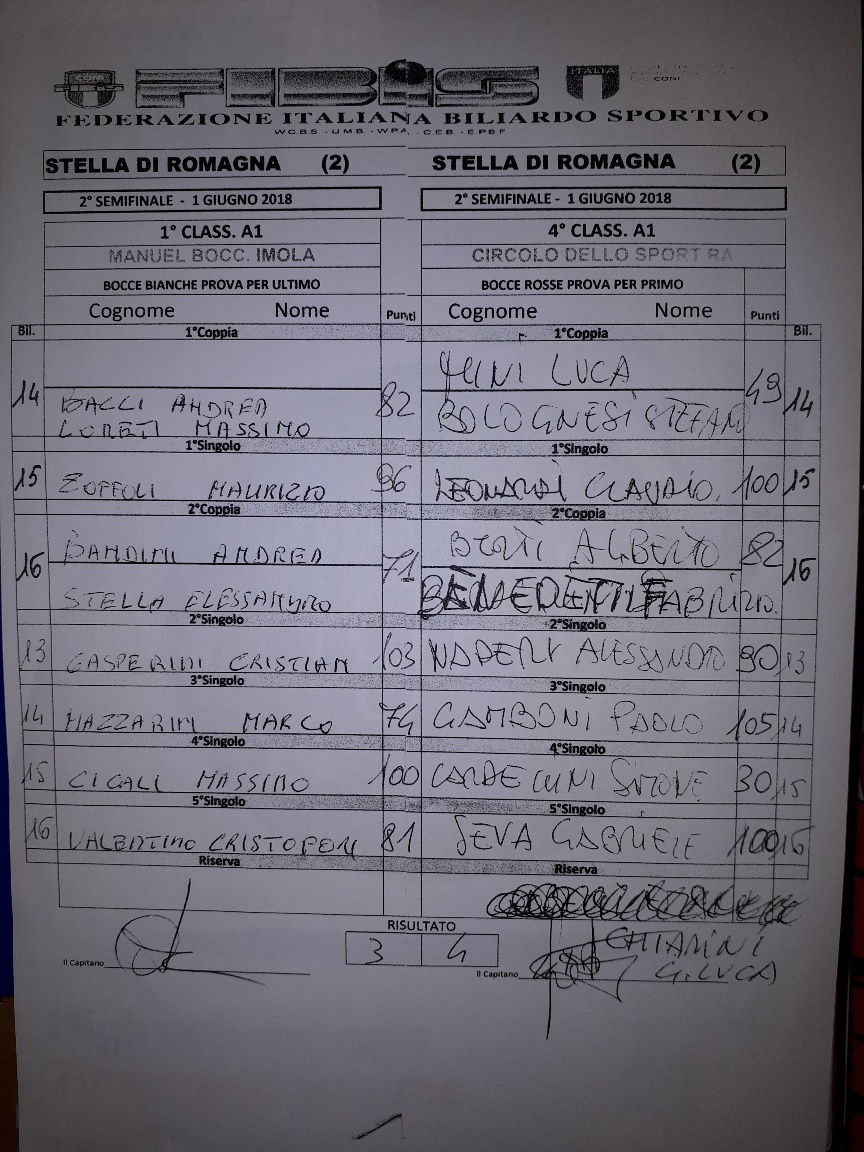 FIBIS
ITALIA
CONI
FEDERAZIONE ITALIANA BILIARDO SPORTIVO
WCBS - UMB - WPA - CEB - EPBF
STELLA DI ROMAGNA (2) STELLA DI ROMAGNA (2)
2° SEMIFINALE - 1 GIUGNO 2018 2° SEMIFINALE - 1 GIUGNO 2018
1° CLASS. A1 4° CLASS. A1
MANUEL BOCC. IMOLA CIRCOLO DELLO SPORT RA
BOCCE BIANCHE PROVA PER ULTIMO BOCCE ROSSE PROVA PER PRIMO
Cognome Nome Punti Cognome Nome Punti
Bil. 1°Coppia 1°Coppia Bil.
LUCA
14 BACCI ANDREA 82 BOLOGNESI STEFANO 49 14
LORETI MASSIMO
1°Singolo 1°Singolo
15 ZOFFOLI MAURIZIO 96 LEONARDI CLAUDIO. 100 15
2°Coppia 2°Coppia
16 BANDINI ANDREA 71 BERTI ALBERTO 82 16
STELLA ELESSANDRO BENEDETTI FABRIZIO.
2°Singolo 2°Singolo
13 GASPERINI CRISTIAN 103 NADERY ALESSANDRO 90 13
3°Singolo 3°Singolo
14 MAZZARINI MARCO 74 GAMBONI PAOLO 105 14
4°Singolo 4°Singolo
15 CICALI MASSIMO 100 SIMONE 30 15
5°Singolo 5°Singolo
16 VALENTINO CRISTOFORI 81 SEVA GABRIELE 100 16
Riserva Riserva
RISULTATO
3 4
CHIARINI
G.LUCA
Il Capitano Il Capitano